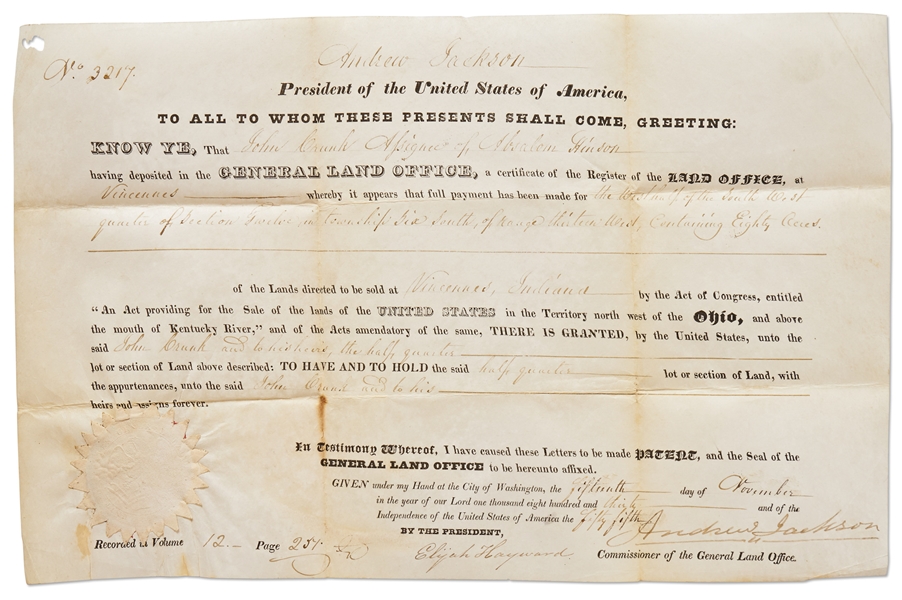 Andrew Jackson
No. 3217.
President of the United States of America,
TO ALL TO WHOM THESE PRESENTS SHALL COME, GREETING:
KNOW YE, That John Crunk Assignee of Absalom Hinson
having deposited in the GENERAL LAND OFFICE, a certificate of the Register of the LAND OFFICE, at
Vincennes whereby it appears that full payment has been made for the West half of the South West
quarter of Section Twelve, in township Six South, of range thirteen West, Containing Eighty Acres.
of the Lands directed to be sold at Vincennes, Indiana by the Act of Congress, entitled
"An Act providing for the Sale of the lands of the UNITED STATES in the Territory north west of the Ohio, and above
the mouth of Kentucky River," and of the Acts amendatory of the same, THERE IS GRANTED, by the United States, unto the
said John Crunk and to his heirs, the half quarter
lot or section of Land above described: TO HAVE AND TO HOLD the said half quarter lot or section of Land, with
the appurtenances, unto the said John Crunk and to his
heirs and assigns forever.
In Testimony Whereof, I have caused these Letters to be made PATENT, and the Seal of the
GENERAL LAND OFFICE to be hereunto affixed.
GIVEN under my Hand at the City of Washington, the fifteenth day of November
in the year of our Lord one thousand eight hundred and thirty and of the
Independence of the United States of America the fifty fifth
Andrew Jackson
BY THE PRESIDENT,
Elijah Hayward Commissioner of the General Land Office.
Recorded in Volume 12. Page 257.